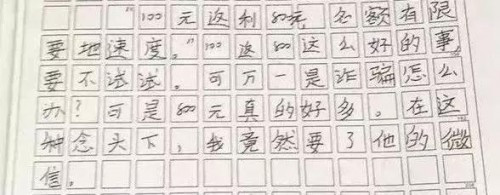 “100元返利800元,名额有限
要地速度。”100返800这么好的事
要不试试。可万一是诈骗怎么
办?可是800元真的好多。在这
种念头下,我竟然要了他的微
信。